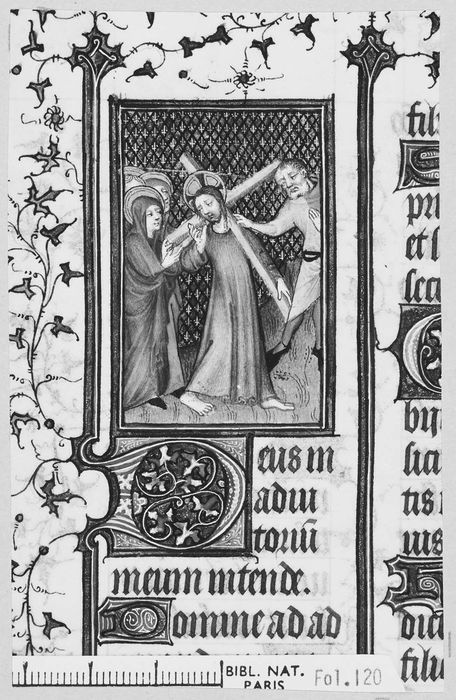 Deus in
adiu
toriū
meum intende.
Domine ad ad
fili
pri
et
secu
bij
lici
tis
uis
dict
filii
BIBL. NAT.
PARIS
Fol. 120